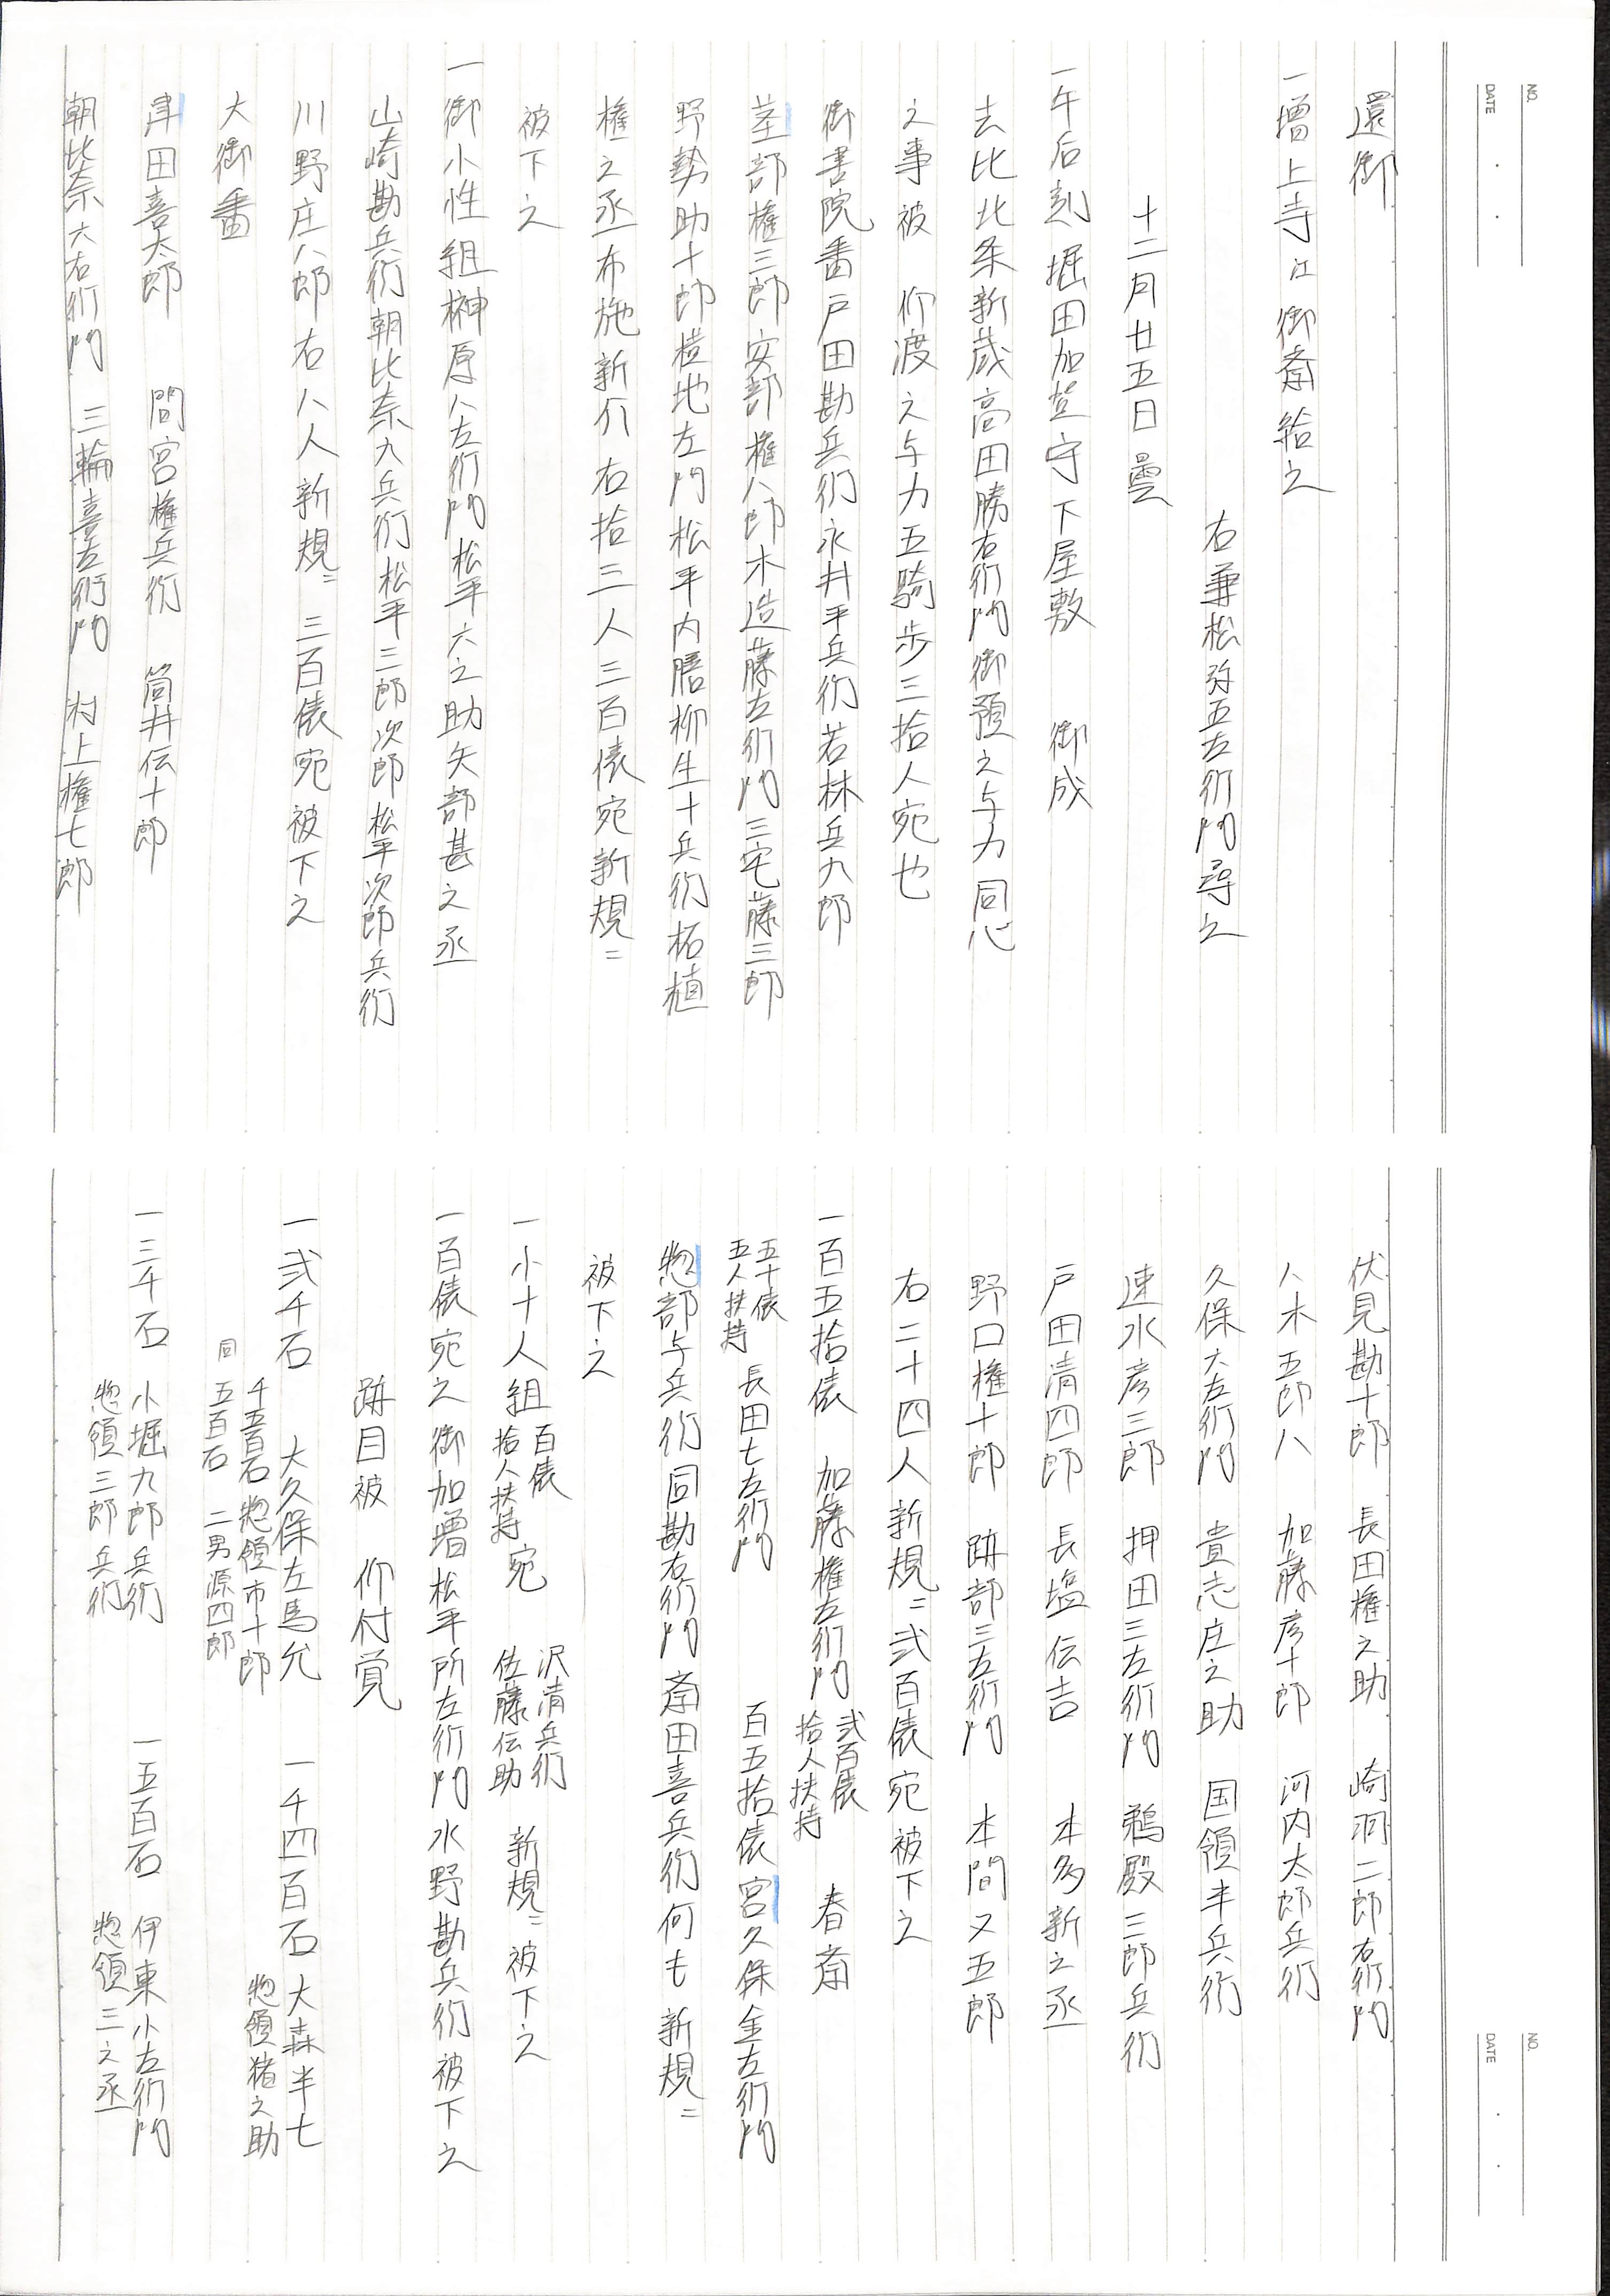 NO.
DATE
還御
一増上寺江御斎給之
右兼松弥五左衛門尋之
十二月廿五日曇
一午后刻堀田加賀守下屋敷 御成
去比北条新蔵高田勝右衛門御預之与力同心
之事被 仰渡之与力五騎歩三拾人宛也
御書院番戸田勘兵衛永井平兵衛若林兵九郎
部権三郎安部権八郎木造藤左衛門三宅藤三郎
野勢助十郎菅地左門松平内膳柳生十兵衛柘植
権之丞布施新介右拾三人三百俵宛新規ニ
被下之
一御小性組榊原八左衛門松平六之助矢部甚之丞
山崎勘兵衛朝比奈九兵衛松平三郎次郎松平次郎兵衛
川野庄八郎右八人新規ニ三百俵宛被下之
大御番
津田喜太郎 間宮権兵衛 筒井伝十郎
朝比奈六右衛門 三輪喜左衛門 村上権七郎
NO.
DATE
伏見勘十郎 長田権之助 崎羽二郎右衛門
八木五郎八 加藤彦十郎 河内太郎兵衛
久保大左衛門 貴志庄之助 国領半兵衛
速水彦三郎 押田三左衛門 鵜殿三郎兵衛
戸田清四郎 長塩伝吉 本多新之丞
野口権十郎 跡部三左衛門 本間又五郎
右二十四人新規ニ弐百俵宛被下之
一百五拾俵 加藤権左衛門 弐百俵拾人扶持 春斎
五十俵五人扶持 長田七左衛門 百五拾俵宮久保金左衛門
惣部与兵衛同勘右衛門斎田喜兵衛何も新規ニ
被下之
一小十人組百俵拾人扶持宛 沢清兵衛 佐藤伝助 新規ニ被下之
一百俵宛之御加増松平所左衛門水野勘兵衛被下之
跡目被 仰付覚
一弐千石 大久保左馬允 一千四百石 大森半七
千五百石惣領市十郎 惣領猪之助
同 五百石 二男源四郎
一三千石 小堀九郎兵衛 一五百石 伊東小左衛門
惣領三郎兵衛 惣領三之丞